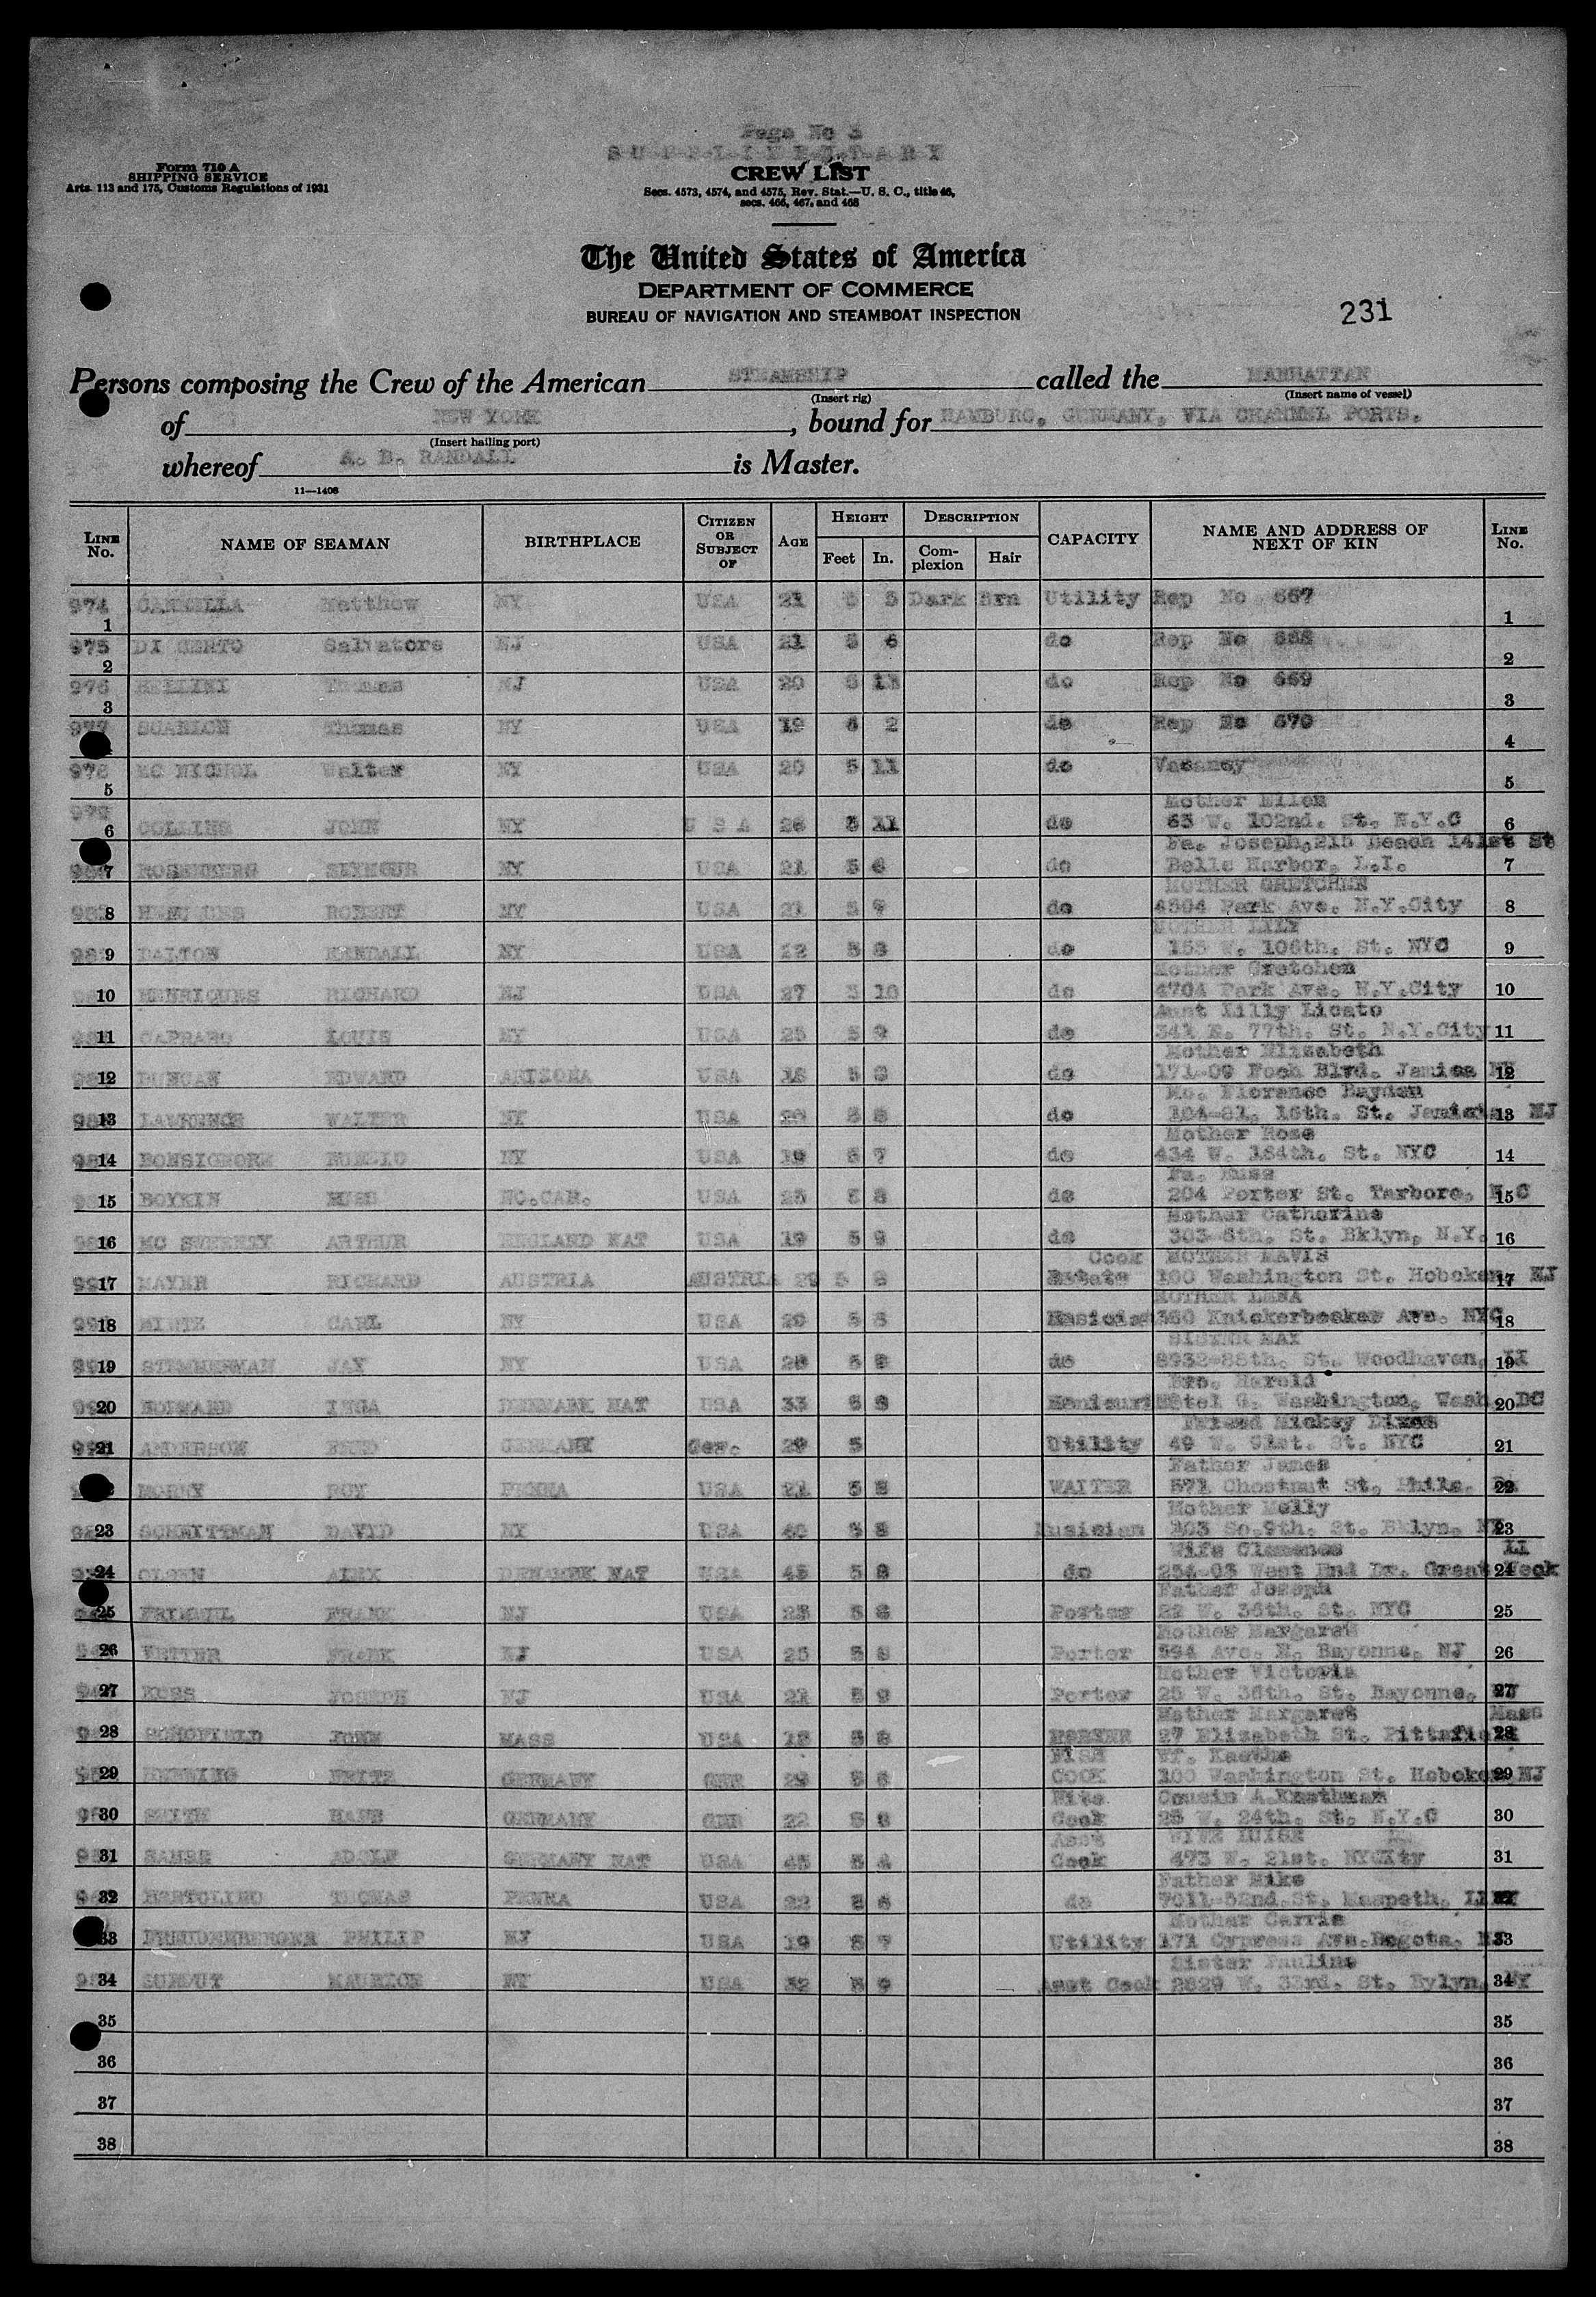 Page No 3
SUPPLIMENTARY
Form 710 A
SHIPPING SERVICE
Arts. 113 and 175, Customs Regulations of 1931
CREW LIST
Secs. 4573, 4574, and 4575, Rev. Stat.—U. S. C., title 46,
secs. 466, 467, and 468
The United States of America
DEPARTMENT OF COMMERCE
BUREAU OF NAVIGATION AND STEAMBOAT INSPECTION
231
Persons composing the Crew of the American STEAMSHIP called the MANHATTAN
(Insert rig) (Insert name of vessel)
of NEW YORK, bound for HAMBURG, GERMANY, VIA CHANNEL PORTS.
(Insert hailing port)
whereof A. B. RANDALL is Master.
11—1408
LINE No. NAME OF SEAMAN BIRTHPLACE CITIZEN OR SUBJECT OF AGE HEIGHT Feet In. DESCRIPTION Complexion Hair CAPACITY NAME AND ADDRESS OF NEXT OF KIN LINE No.
974 1 Matthew NY USA 21 5 5 Dark Brn Utility Rep No 667 1
975 2 DI CERTO Salvatore NJ USA 21 5 6 do Rep No 668 2
976 3 BELLINI Thomas NJ USA 20 5 do Rep No 669 3
977 SCANLON Thomas NY USA 19 6 2 do Rep No 670 4
978 5 MC NICHOL Walter NY USA 20 5 11 do Vacancy 5
Mother Ellen
979 6 COLLINS JOHN NY U S A 26 5 11 do 65 W. 102nd. St. N.Y.C 6
Fa. Joseph, 215 Beach 141st St
7 ROSENBERG SEYMOUR NY USA 21 5 6 do Belle Harbor, L.I. 7
MOTHER GRETCHEN
8 ROBERT NY USA 21 5 do Park Ave. N.Y.City 8
MOTHER LILY
9 DALTON NY USA 5 8 do 155 W. 106th. St. NYC 9
Mother Gretchen
10 HENRIQUES RICHARD NJ USA 27 5 10 do 4704 Park Ave. N.Y.City 10
Aunt Lilly Licato
11 CAPRARO LOUIS NY USA 25 5 9 do E. 77th. St. N.Y.City 11
Mother Elizabeth
12 DUNCAN EDWARD ARIZONA USA 18 5 8 do 171-09 Foch Blvd. Jamica 12
Mo. Florence Bayden
13 LAWRENCE WALTER NY USA 5 8 do 104-81, 16th. St. NJ 13
Mother Rose
14 BONSIGNORE NUNZIO NY USA 19 5 7 do 434 W. 164th. St. NYC 14
Fa.
15 BOYKIN NO.CAR. USA 25 5 8 do 204 Porter St. Tarboro, N C 15
Mother Catherine
16 MC SWEENEY ARTHUR ENGLAND NAT USA 19 5 9 do 303-8th. St. Bklyn, N.Y. 16
Cook MOTHER MAVIS
17 MAYER RICHARD AUSTRIA AUSTRIA 29 5 8 100 Washington St. Hoboken NJ 17
MOTHER LENA
18 MINTZ CARL NY USA 20 5 8 Musician 380 Knickerbocker Ave. NYC 18
SISTER MAY
19 STEMMERMAN JAY NY USA 5 8 do 8932-88th. St. Woodhaven, LI 19
Bro. Harold
20 INGA DENMARK NAT USA 33 5 8 Manicuri Hotel G. Washington, Wash. DC 20
Friend Mickey Dixon
21 ANDERSON GERMANY Ger. 29 5 Utility 49 W. 91st. St. NYC 21
Father James
ROY PENNA USA 21 5 8 WAITER 571 Chestnut St, Phila. Pa 22
Mother Molly
23 SCHMITTMAN DAVID NY USA 40 5 8 Musician 103 So.9th. St. Bklyn, NY 23
Wife Clemence LI
24 OLSEN ALEX DENAMRK NAT USA 45 5 8 do 254-03 West End Dr. Great Neck 24
Father Joseph
25 FRANK NJ USA 23 5 8 Porter 22 W. 36th. St. NYC 25
Mother Margaret
26 FRANK NJ USA 25 5 8 Porter 594 Ave. E. Bayonne, NJ 26
Mother Victoria
27 KOSS JOSEPH NJ USA 21 5 9 Porter 25 W. 36th. St. Bayonne, NJ 27
Mother Margaret Mass
28 SCHOFIELD JOHN MASS USA 18 5 8 27 Elizabeth St. Pittsfield 28
FISH WF. Kaethe
29 HENNING FRITZ GERMANY GER 29 5 6 COOK 100 Washington St. Hoboken NJ 29
Nite Cousin A.
30 SMITH HANS GERMANY GER 22 5 8 Cook 25 W. 24th. St. N.Y.C 30
Asst WIFE LUISE
31 ADOLF GERMANY NAT USA 45 5 4 Cook 473 W. 21st. NYCity 31
Father Mike
32 BERTOLINO THOMAS PENNA USA 22 5 6 do 7011-52nd.St. Maspeth, LI 32
Mother Carrie
33 FREUDENBERGER PHILIP NJ USA 19 5 7 Utility 171 Cypress Ave.Bogota, NJ 33
Sister Pauline
34 MAURICE NY USA 32 5 9 Asst Cook 2829 W. 33rd. St. NY 34
35 35
36 36
37 37
38 38